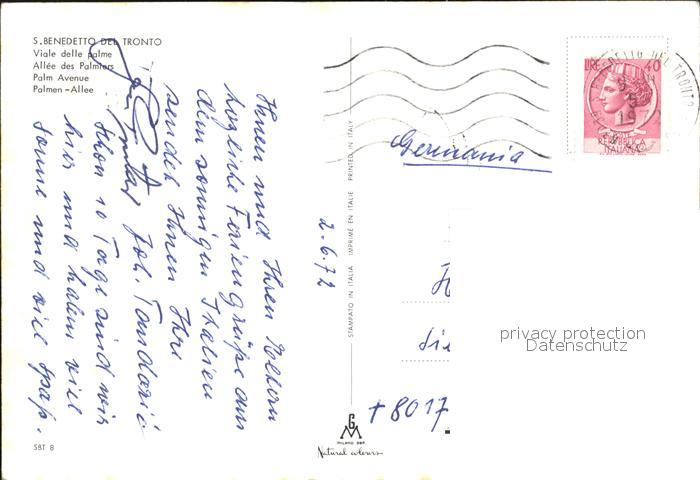 S. BENEDETTO DEL TRONTO
Viale delle palme
Allée des Palmiers
Palm Avenue
Palmen - Allee
2-6.72
Ihnen und Ihren Eltern
herzliche Feriengrüße aus
dem sonnigen Italien
sendet Ihnen Ihre
Joh.
Schon 10 Tage sind wir
hier und haben viel
Sonne und viel Spaß.
SBT 8
STAMPATO IN ITALIA IMPRIMÉ EN ITALIE PRINTED IN ITALY
G
M
MILANO DEP.
Natural colours
S. BENEDETTO DEL TRONTO
LIRE 40
REPUBBLICA
ITALIANA
Germania
privacy protection
Datenschutz
+ 8017